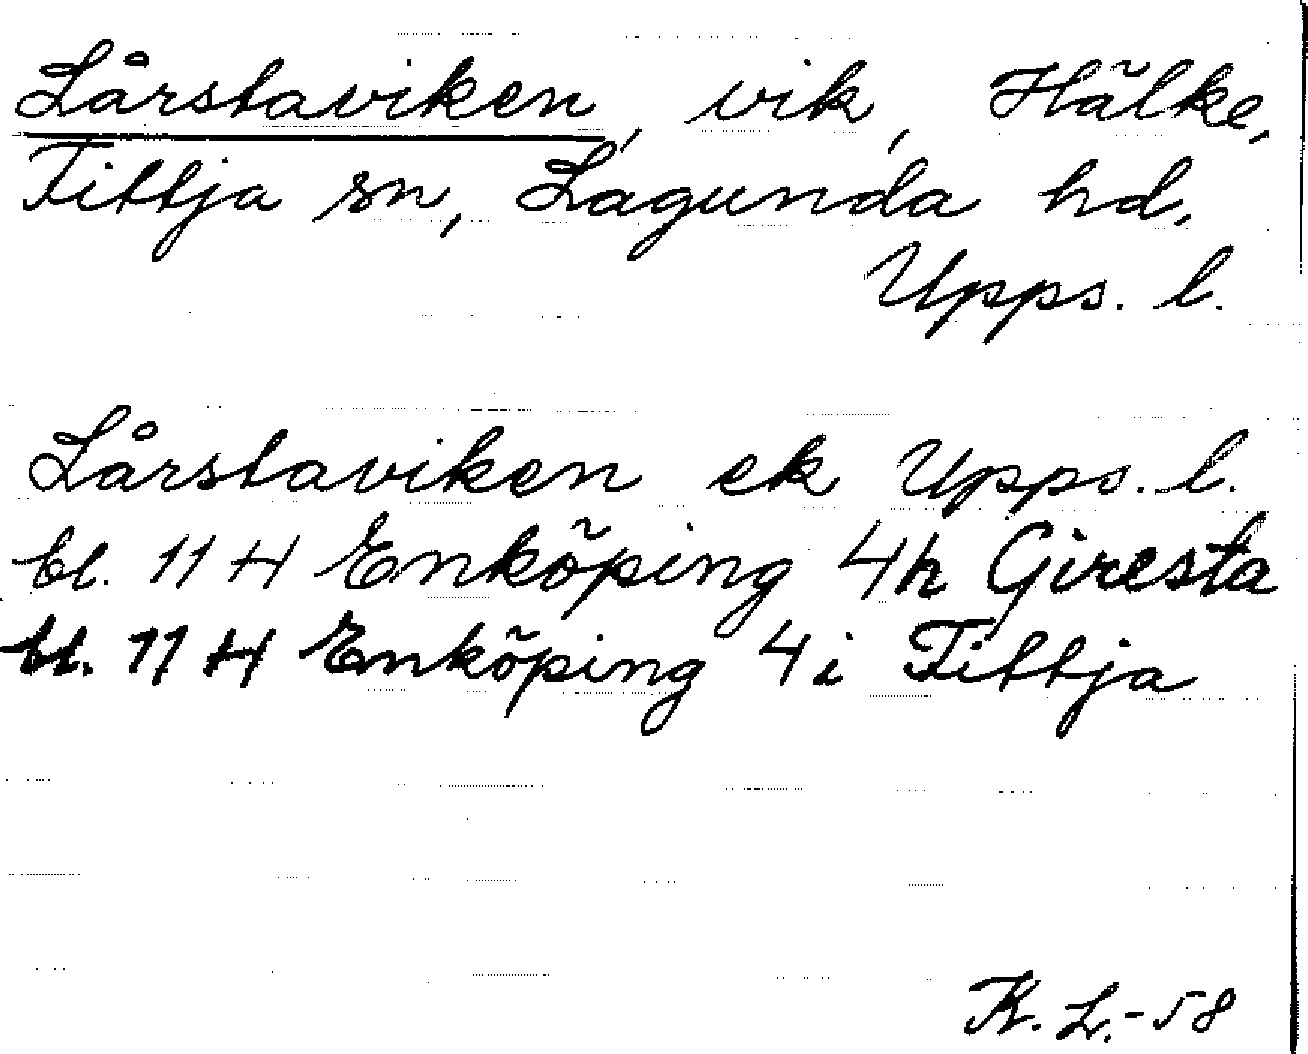 Lårstaviken, vik, Hälke,
Fittja sn, Lagunda hd,
Upps. l.
Lårstaviken ek Upps. l.
bl. 11 H Enköping 4h Giresta
bl. 11 H Enköping 4i Fittja
K. L.-58